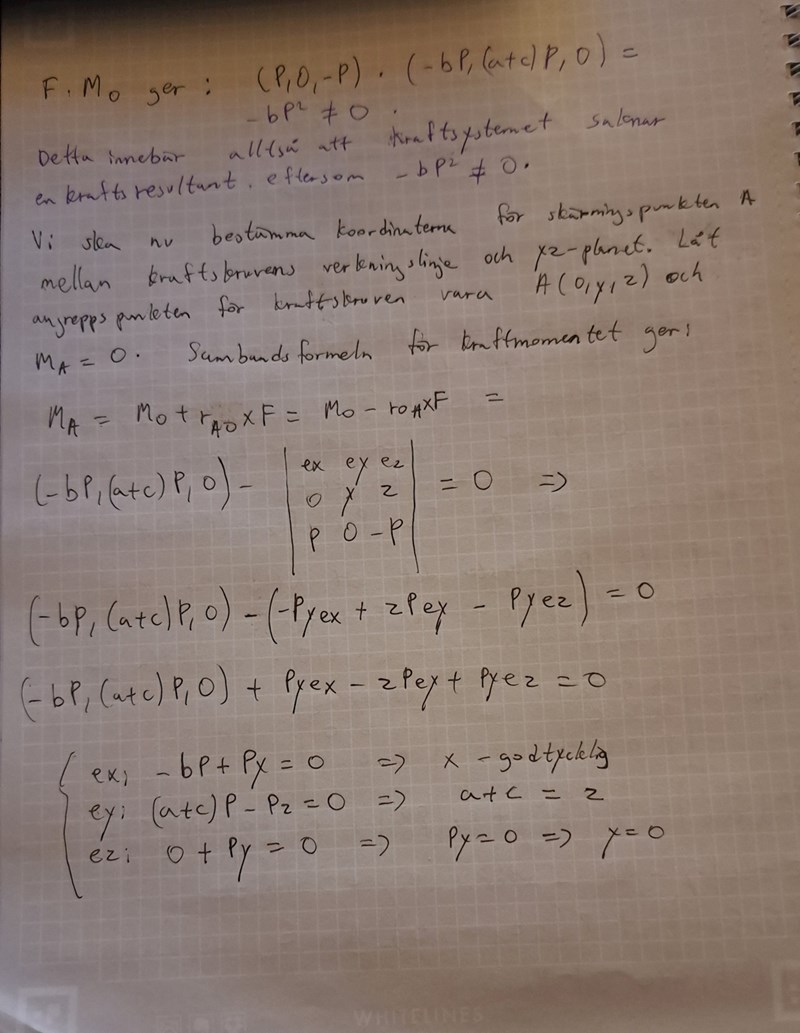 F · Mo ger : (P,0,-P) · (-bP,(a+c)P,0) =
-bP² ≠ 0 .
Detta innebär alltså att kraftsystemet saknar
en kraftsresultant, eftersom -bP² ≠ 0.
Vi ska nu bestämma koordinaterna för skärningspunkten A
mellan kraftskruvens verkningslinje och yz-planet. Låt
angreppspunkten för kraftskruven vara A(0,y,z) och
MA = 0. Sambandsformeln för kraftmomentet ger:
MA = Mo + rAO × F = Mo - rOA × F =
(-bP,(a+c)P,0) - | ex ey ez | = 0 =>
| 0 y z |
| P 0 -P |
(-bP,(a+c)P,0) - (-Pyex + zPey - Pyez) = 0
(-bP,(a+c)P,0) + Pyex - zPey + Pyez = 0
{ ex: -bP + Py = 0 => x - godtycklig
ey: (a+c)P - Pz = 0 => a+c = z
ez: 0 + Py = 0 => Py = 0 => y = 0
WHITELINES